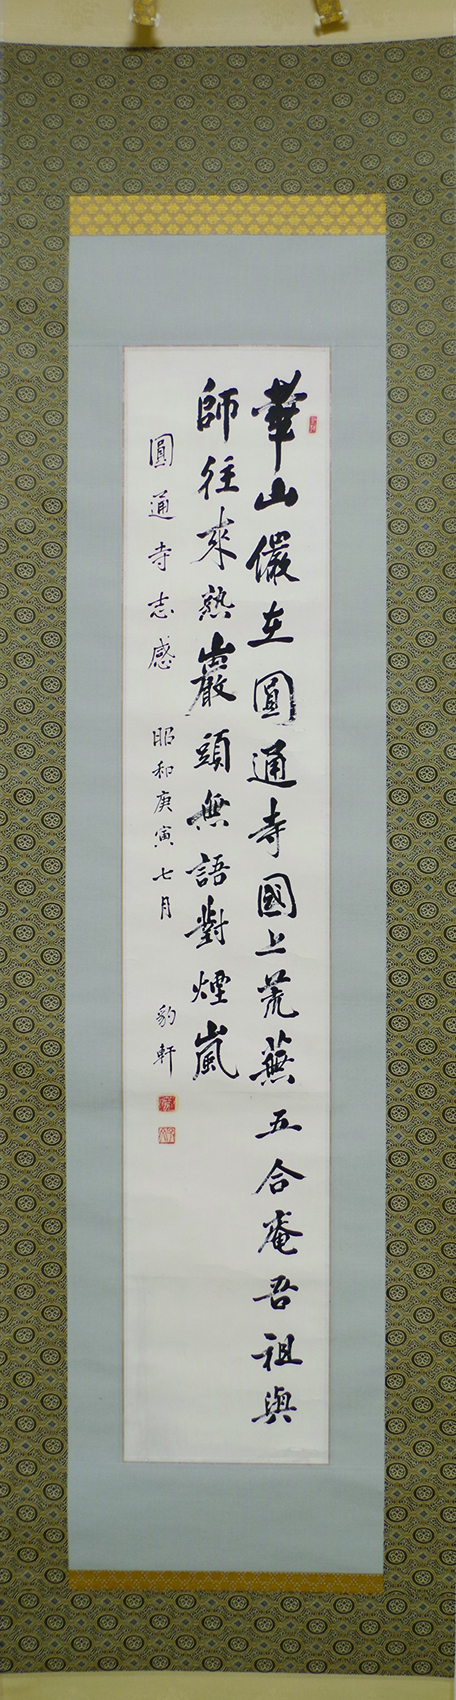 華山儼在圓通寺國上荒蕪五合庵吾祖與
師往來熟巖頭無語對煙嵐
圓通寺志感 昭和庚寅七月 豹軒